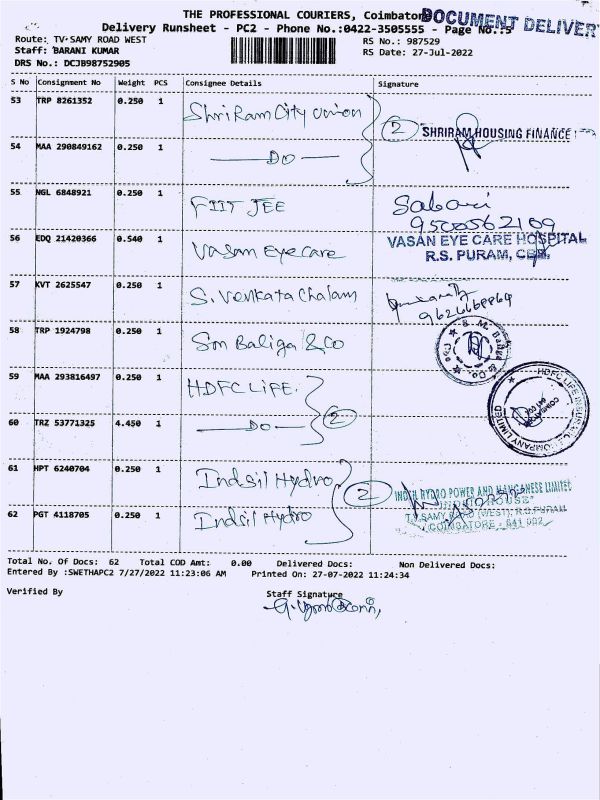 THE PROFESSIONAL COURIERS, Coimbatore
DOCUMENT DELIVER
Delivery Runsheet - PC2 - Phone No.:0422-3505555 - Page No.:5
Route: TV-SAMY ROAD WEST
RS No.: 987529
Staff: BARANI KUMAR
RS Date: 27-Jul-2022
DRS No.: DCJB98752905
S No Consignment No Weight PCS Consignee Details Signature
53 TRP 8261352 0.250 1 ShriRam City Union
2 SHRIRAM HOUSING FINANCE
54 MAA 290849162 0.250 1 —DO—
55 NGL 6848921 0.250 1 FIIT JEE Sabari
9500562109
56 EDQ 21420366 0.540 1 Vasan Eye care VASAN EYE CARE HOSPITAL
R.S. PURAM, CBE.
57 KVT 2625547 0.250 1 S. Venkata Chalam
58 TRP 1924798 0.250 1 Sm Baliga & Co
59 MAA 293816497 0.250 1 HDFC LIFE.
HDFC LIFE INSURANCE COMPANY LIMITED
60 TRZ 53771325 4.450 1 —DO— 2
61 HPT 6240704 0.250 1 Indsil Hydro
2 INDSIL HYDRO POWER AND MANGANESE LIMITED
T.V. SAMY ROAD (WEST), R.S. PURAM
62 PGT 4118705 0.250 1 Indsil Hydro
COIMBATORE - 641 002
Total No. Of Docs: 62 Total COD Amt: 0.00 Delivered Docs: Non Delivered Docs:
Entered By :SWETHAPC2 7/27/2022 11:23:06 AM Printed On: 27-07-2022 11:24:34
Verified By Staff Signature